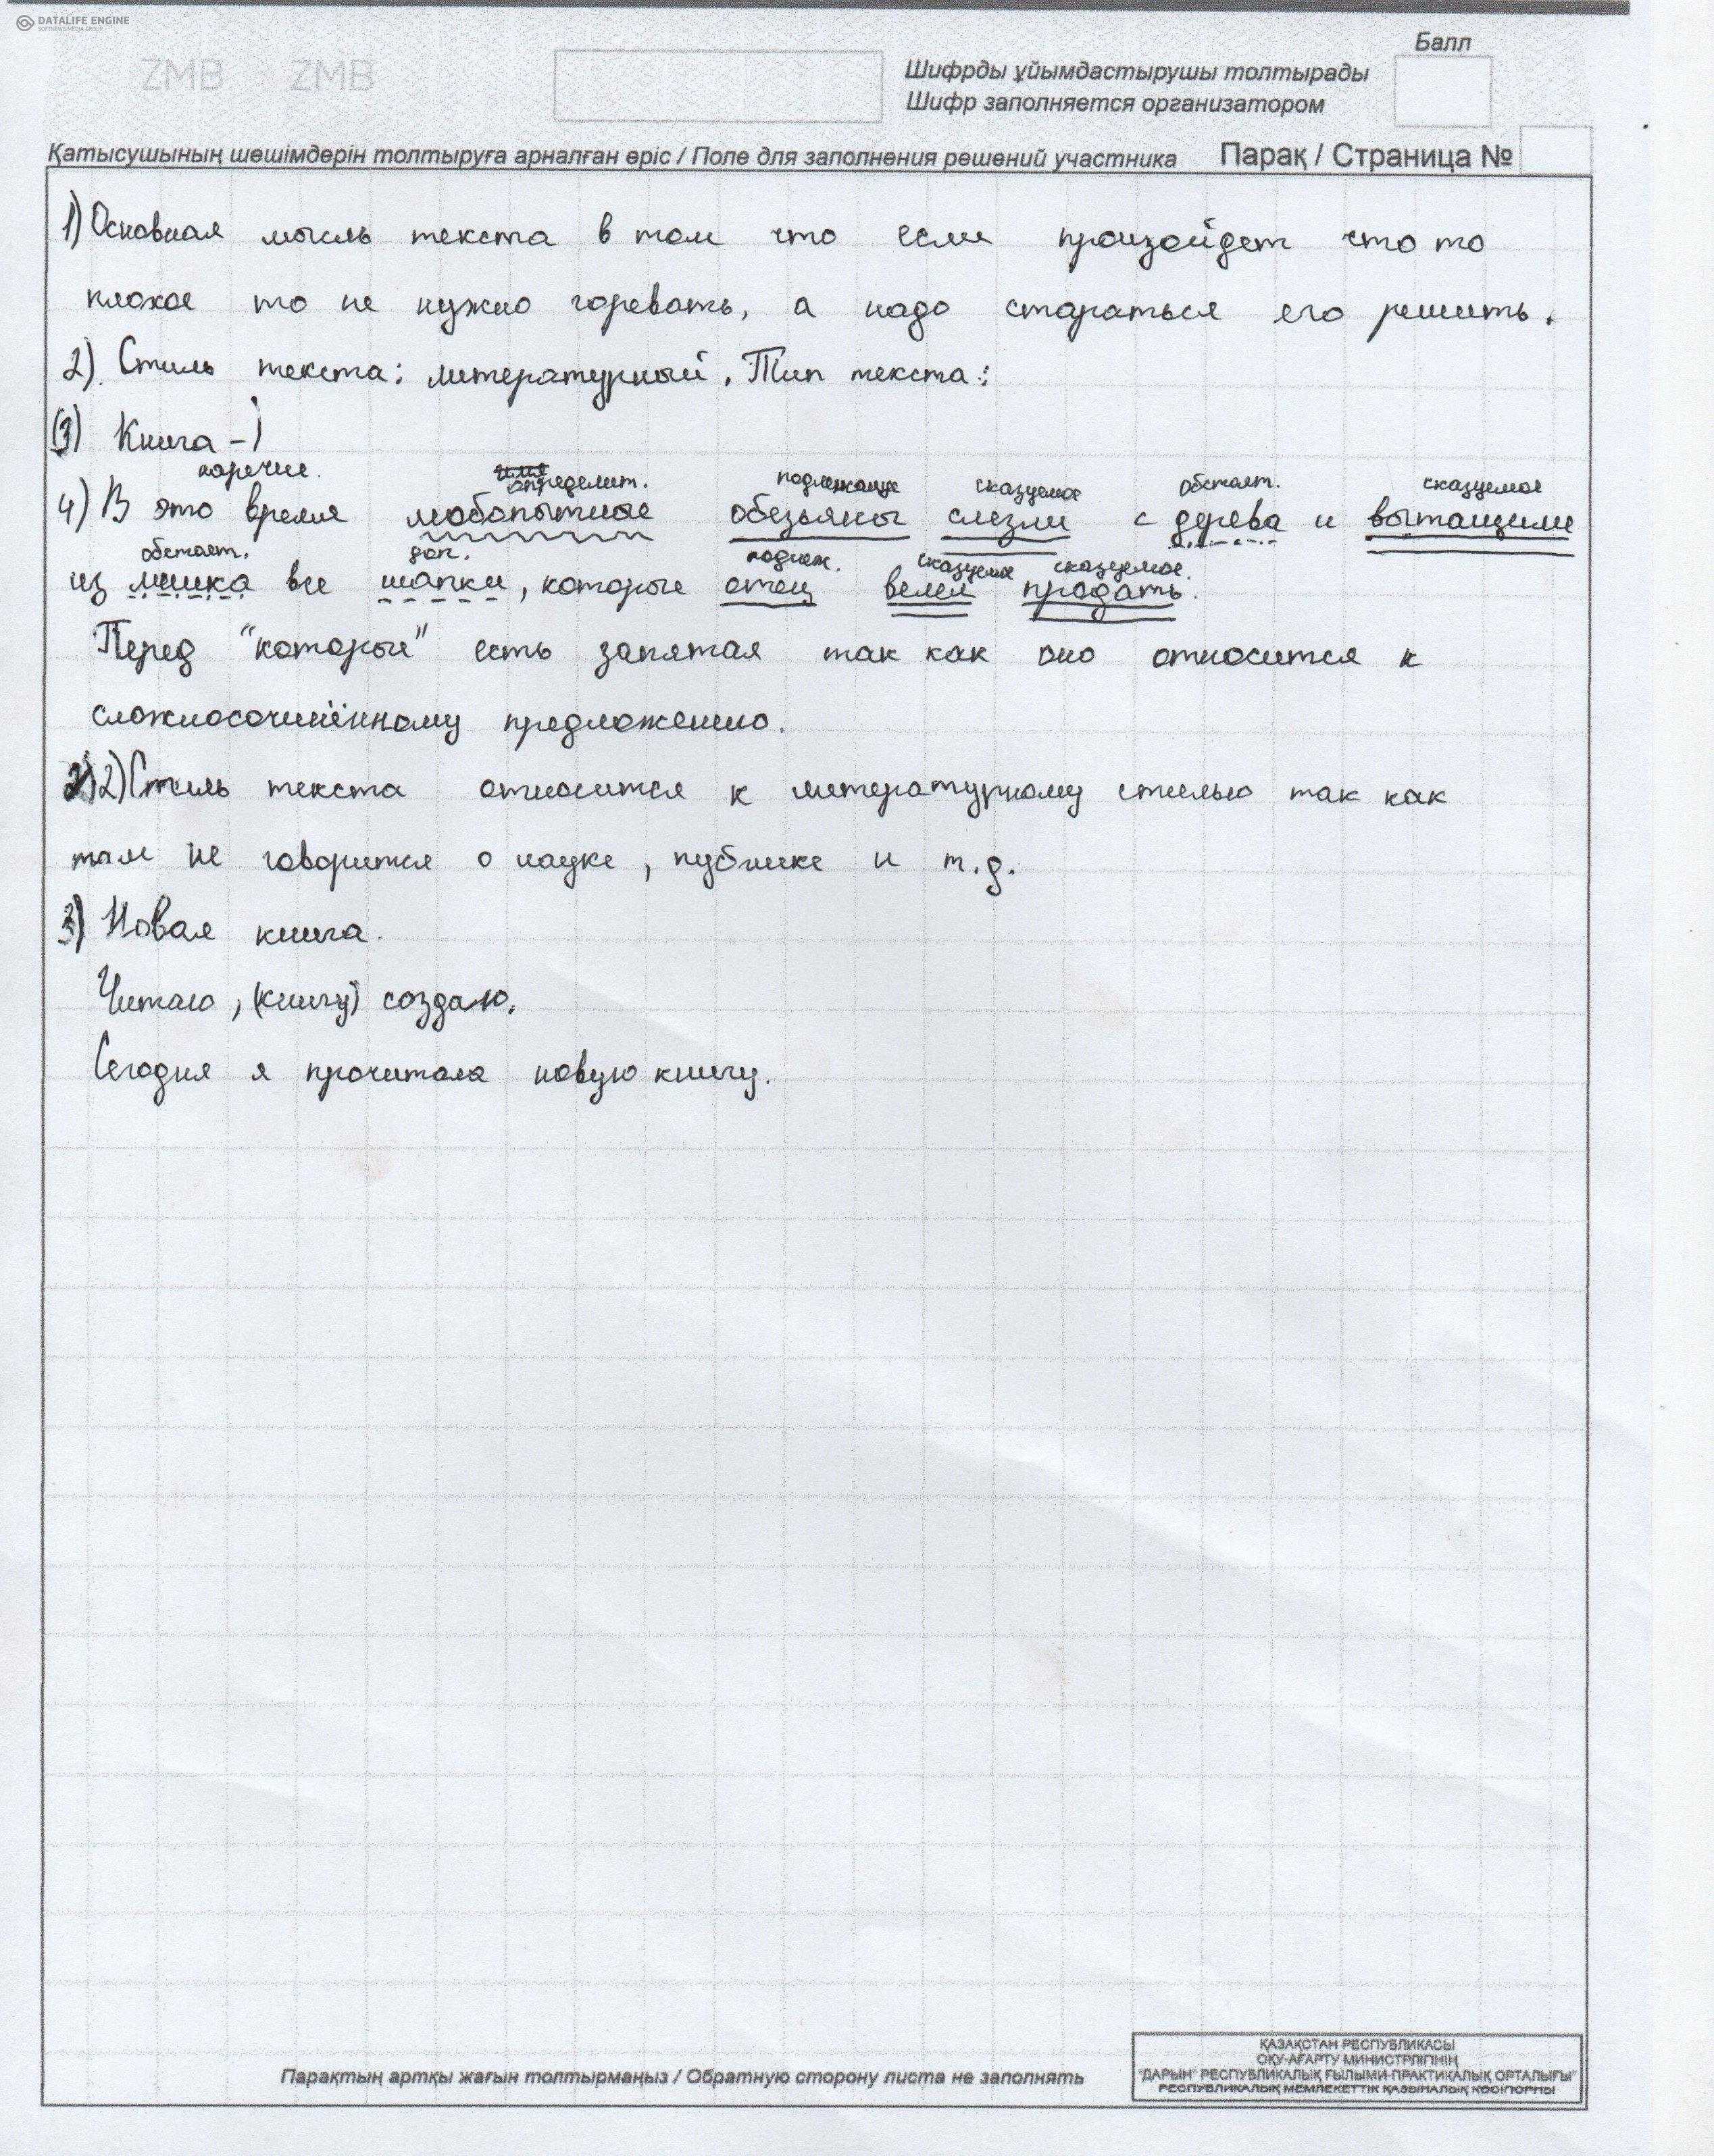 DATALIFE ENGINE
SOFTNEWS MEDIA GROUP
ZMB ZMB
Балл
Шифрды ұйымдастырушы толтырады
Шифр заполняется организатором
Қатысушының шешімдерін толтыруға арналған өріс / Поле для заполнения решений участника Парақ / Страница №
1) Основная мысль текста в том что если произойдет что то
плохое то не нужно горевать, а надо стараться его решить.
2). Стиль текста: литературный. Тип текста:
(3) Книга -
наречие. определит. подлежащие сказуемое обстоят. сказуемое
4) В это время любопытные обезьяны слезли с дерева и вытащили
обстоят. доп. подлеж. сказуемое сказуемое.
из мешка все шапки, которые отец велел продать.
Перед "которые" есть запятая так как оно относится к
сложносочинённому предложению.
2) Стиль текста относится к литературному стилью так как
там не говорится о науке, публике и т.д.
3) Новая книга.
Читаю, (книгу) создаю.
Сегодня я прочитала новую книгу.
Парақтың артқы жағын толтырмаңыз / Обратную сторону листа не заполнять
ҚАЗАҚСТАН РЕСПУБЛИКАСЫ
ОҚУ-АҒАРТУ МИНИСТРЛІГІНІҢ
"ДАРЫН" РЕСПУБЛИКАЛЫҚ ҒЫЛЫМИ-ПРАКТИКАЛЫҚ ОРТАЛЫҒЫ"
РЕСПУБЛИКАЛЫҚ МЕМЛЕКЕТТІК ҚАЗЫНАЛЫҚ КӘСІПОРНЫ